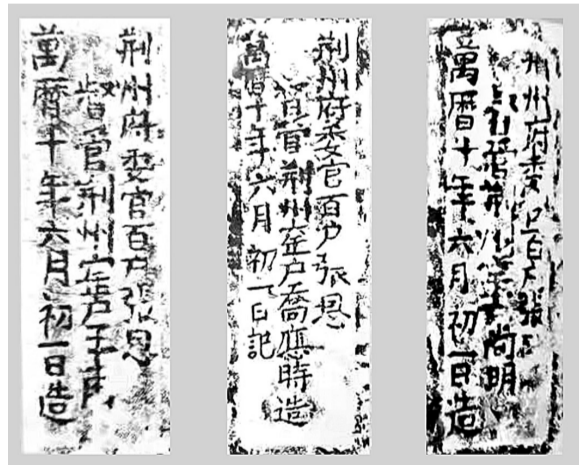 荆州府委官百户張恩
督管荆州窑户王
萬曆十年六月初一日造
荆州府委官百户張恩
督管荆州窑户喬應時造
萬曆十年六月初一日記
荆州府委官百户張
督管荆州窑户尚明
萬曆十年六月初一日造